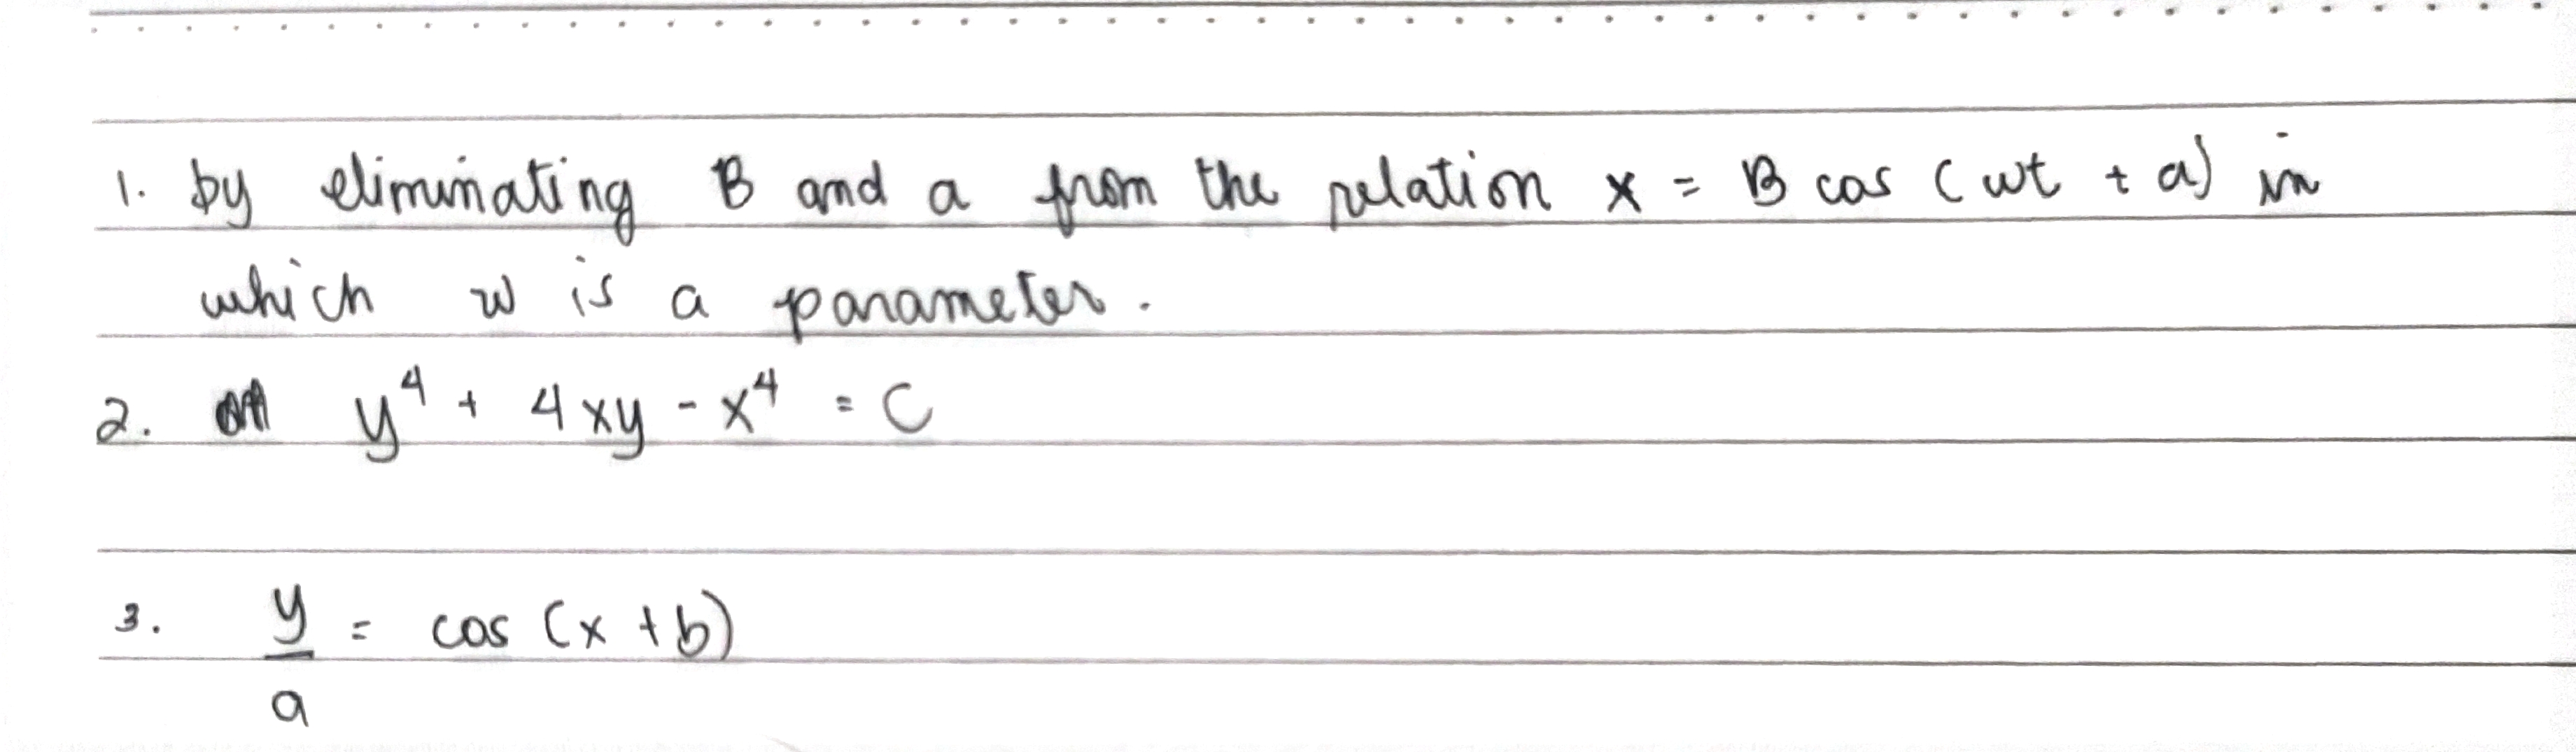 1. by eliminating B and a from the relation x = B cos (wt + a) in
which w is a parameter.
2. y⁴ + 4xy - x⁴ = C
3. y/a = cos (x + b)